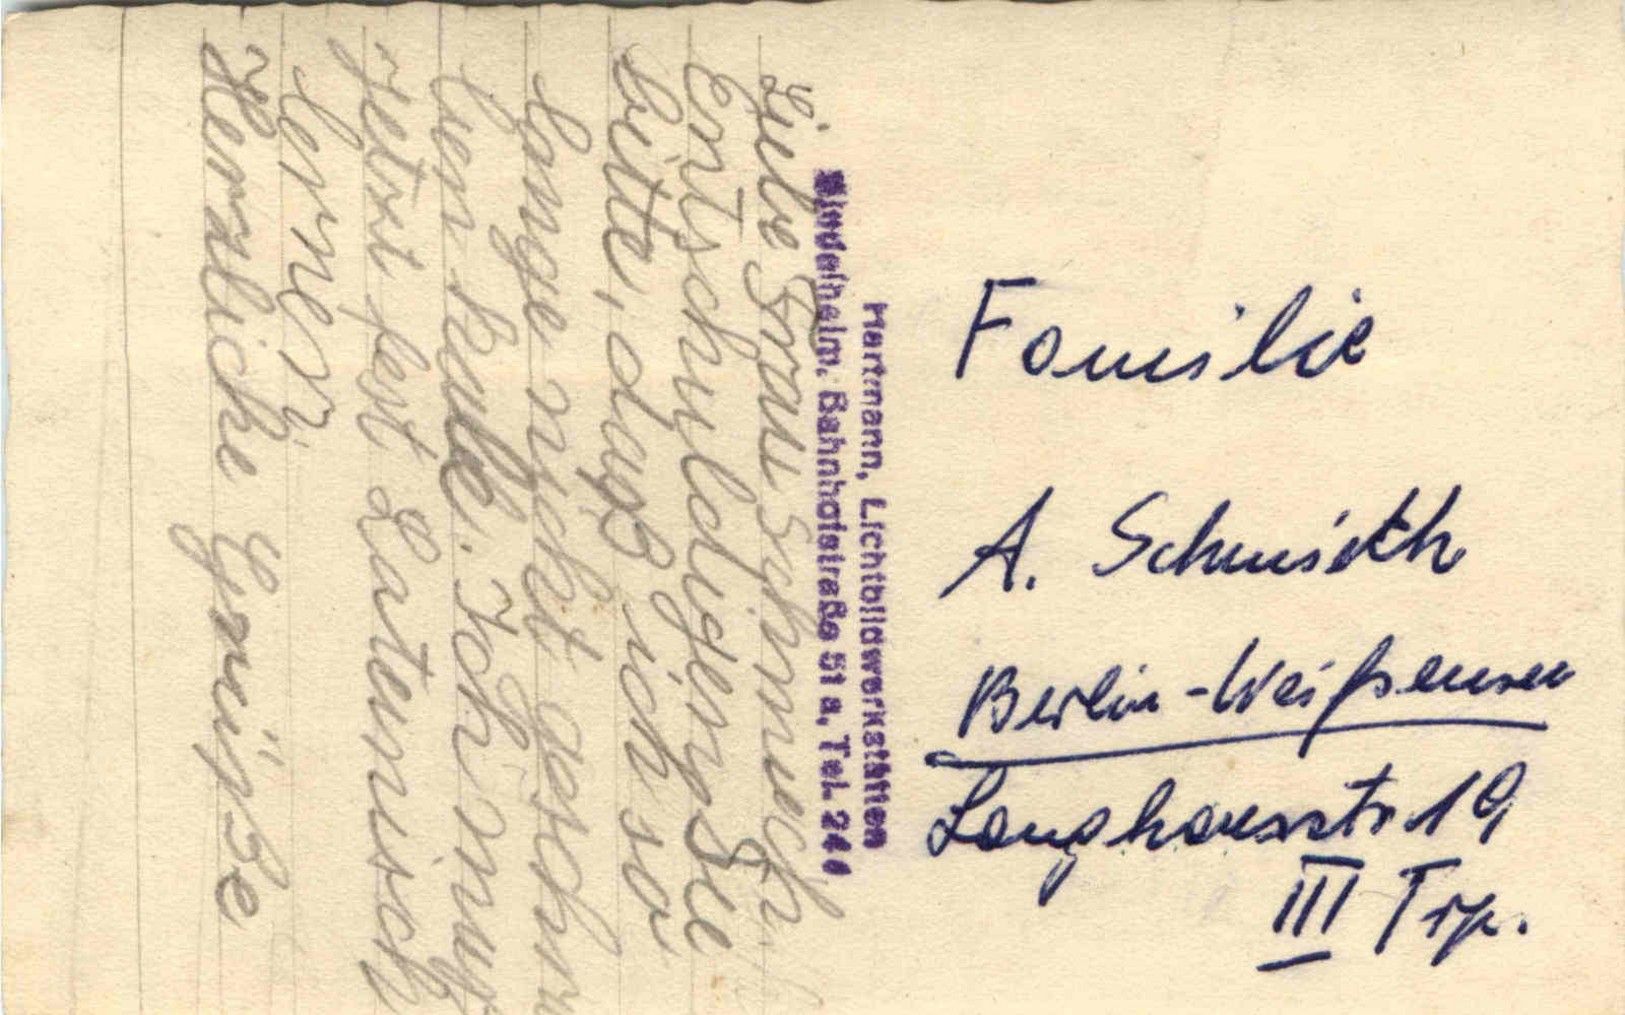 Liebe Frau Schmuch.
Entschuldigen Sie
bitte, daß ich so
lange nicht geschri
ben habe. Ich muß
jetzt fest Lateinisch
lernen.
Herzliche Grüße
Hartmann, Lichtbildwerkstätten
Mindelheim, Bahnhofstraße 51 a, Tel. 244
Familie
A. Schmidth
Berlin-Weißensee
Langhansstr 19
III Trp.